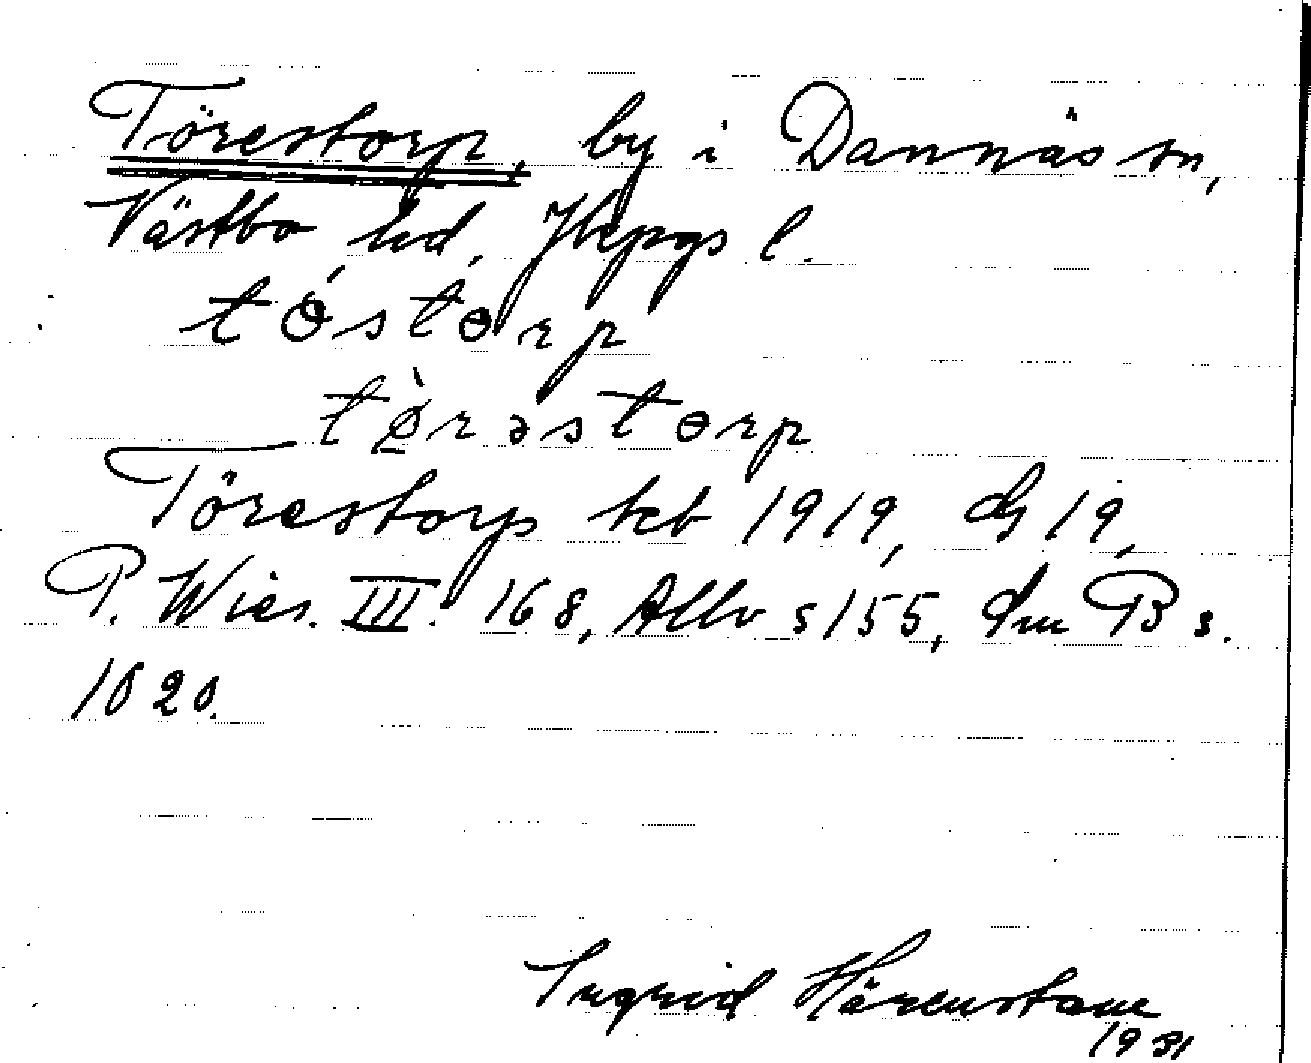 Törestorp, by i Dannäs sn,
Västbo hd, Jkpgs l.
tóstorp
tö̀rəstorp
Törestorp tcb 1919, G 19,
P. Wies. III. 168, Allv s 155, dm B s.
1020.
Ingrid Härenstam
1931